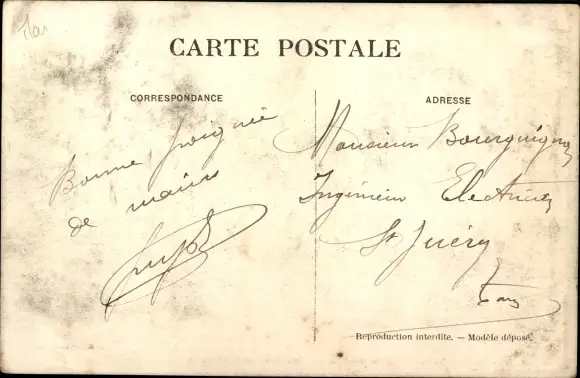 CARTE POSTALE
CORRESPONDANCE
Bonne poignée
de mains
ADRESSE
Monsieur Bourguignon
Ingénieur Electricien
St Juéry
Tarn
Reproduction interdite. — Modèle déposé.